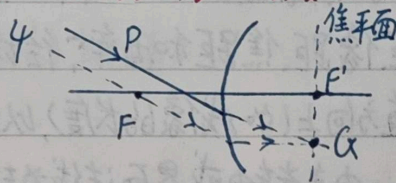 4
P
焦平面
F
F'
G